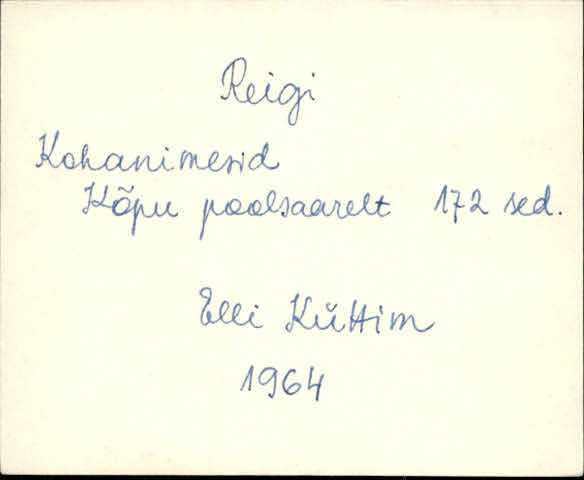 Reigi
Kohanimesid
Kõpu poolsaarelt 172 sed.
Elli Küttim
1964